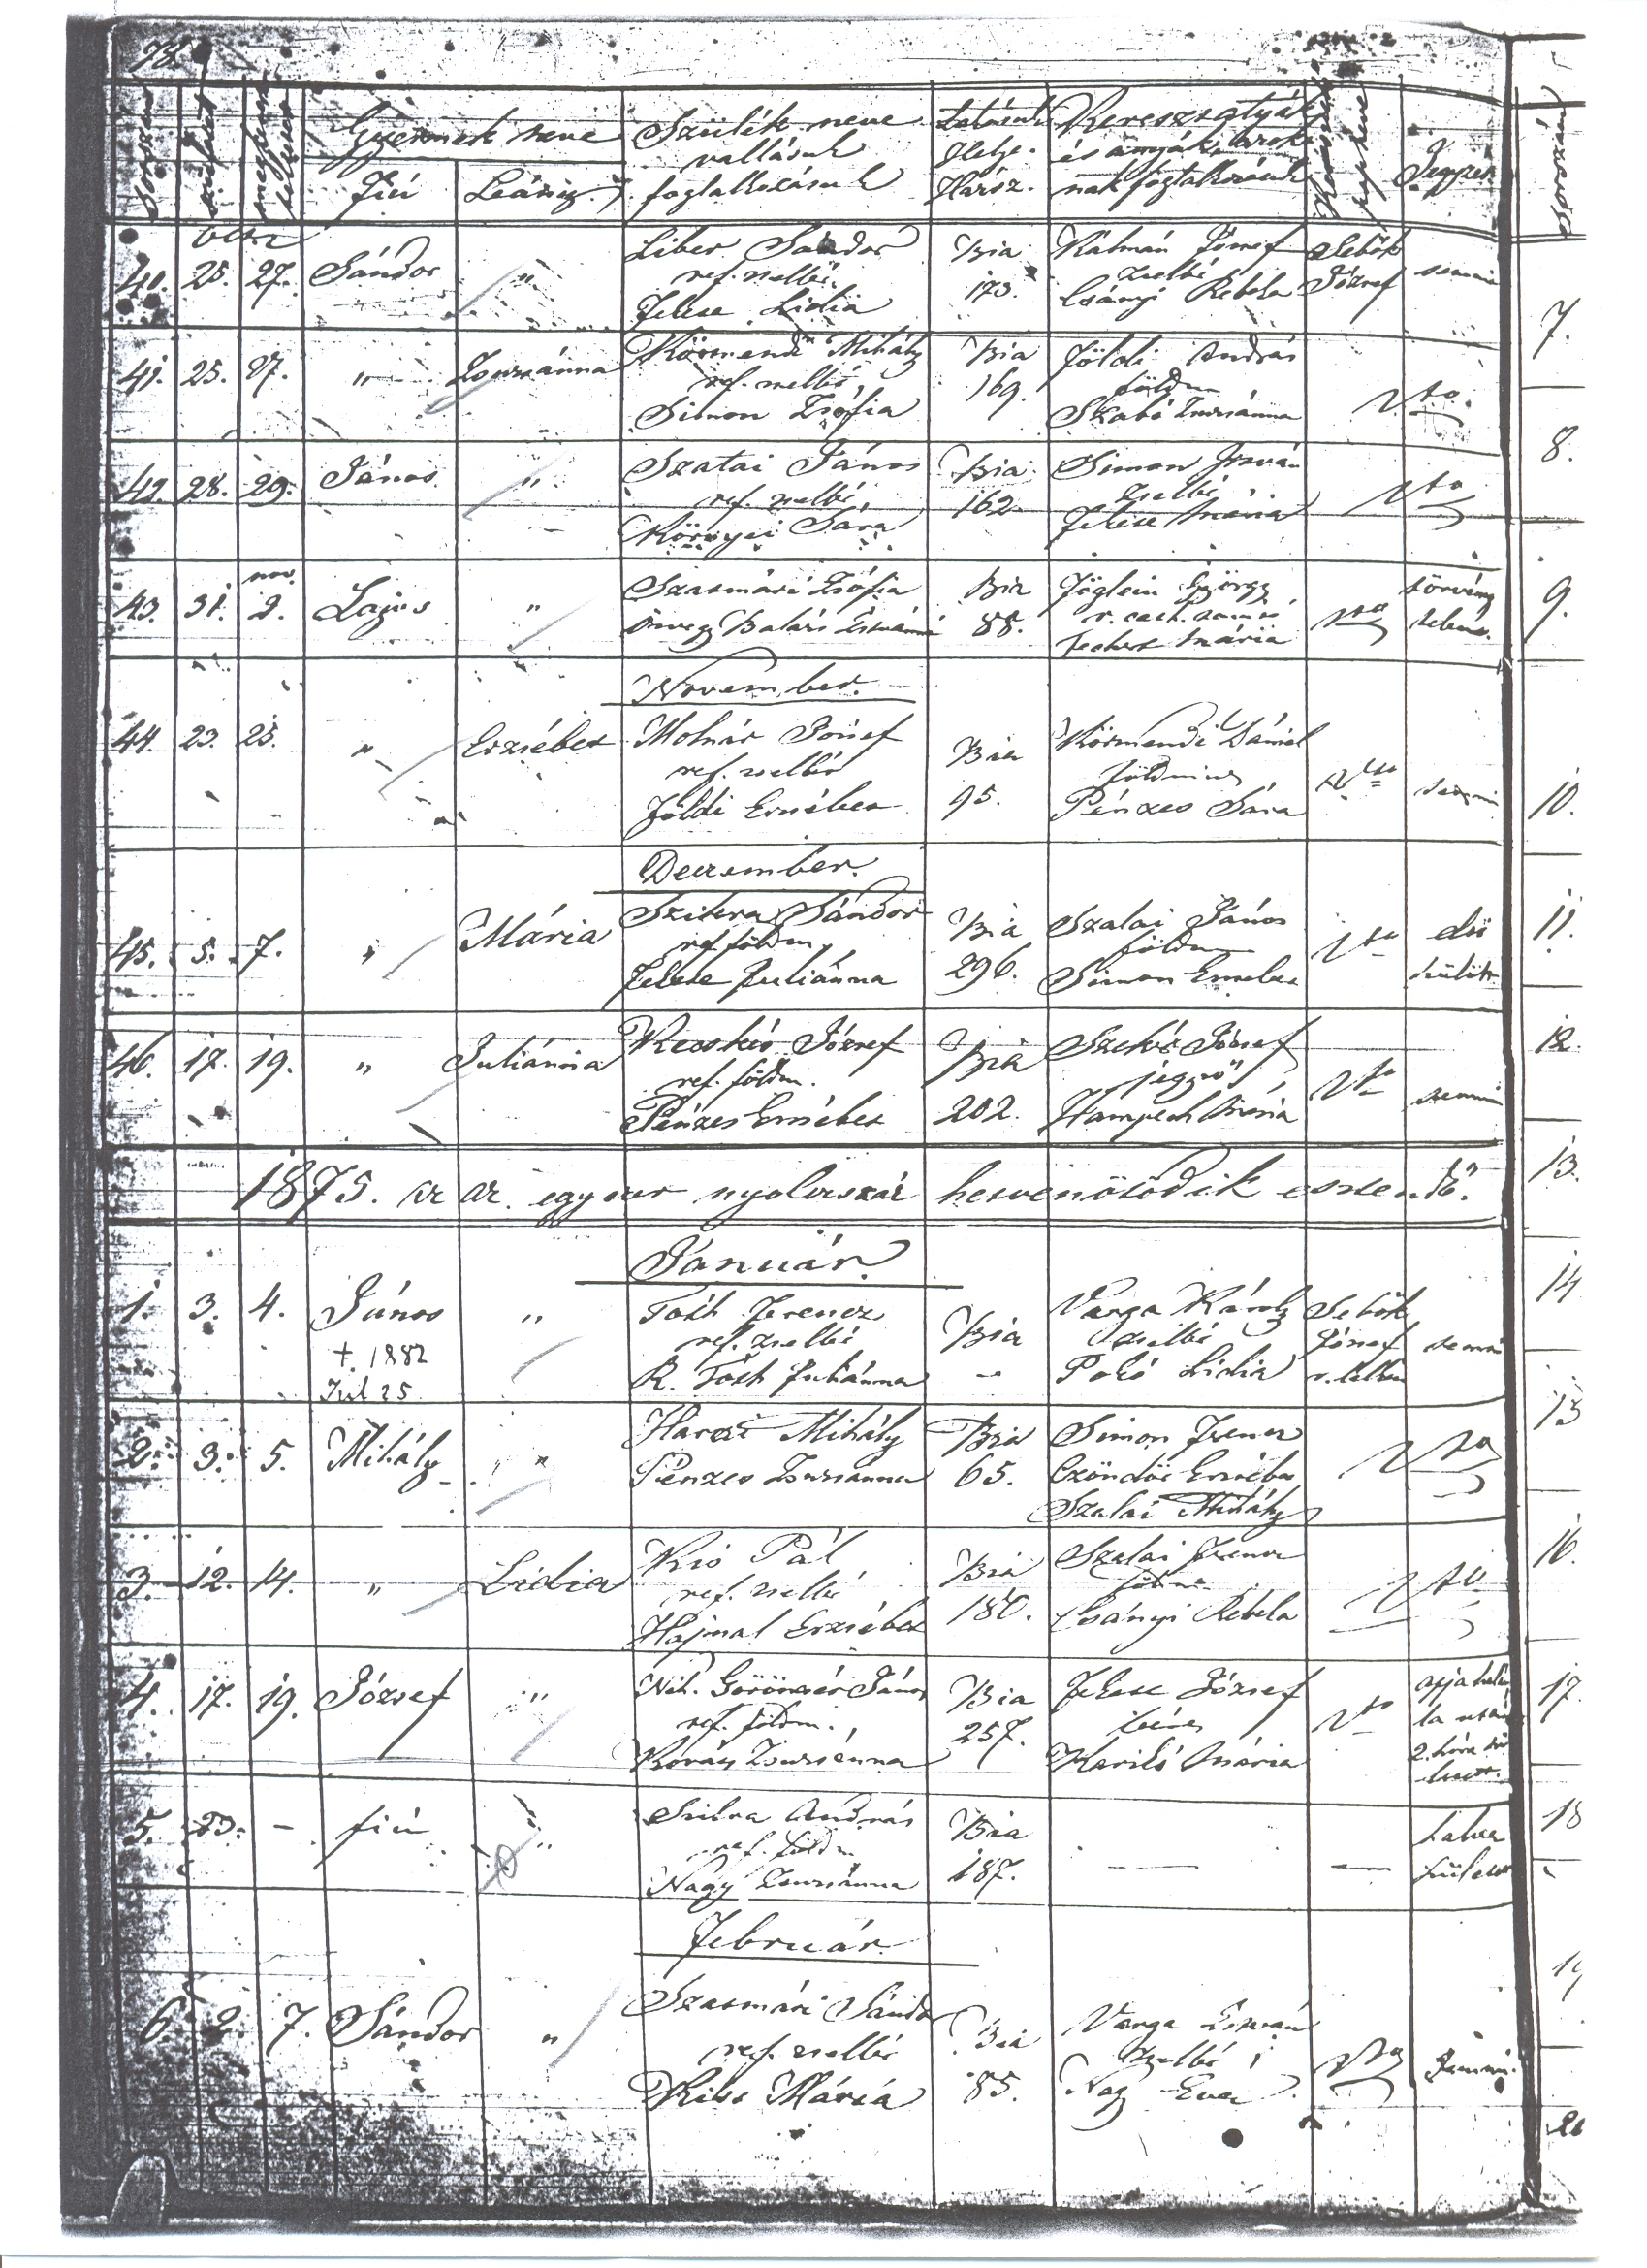 78.
Gyermek neve
Fiú
Leány
Szülék neve
vallásuk
foglalkozásuk
helye.
Házsz.
Keresztatyák
és anyák, azok-
nak foglalkozásuk
Jegyzés
Sorszám
40. 25. 27. Sándor "
Liber Sándor
ref. zsellér
Fekese Lidia
Bia
173.
Kálmán József
zsellér
Csányi Rebeka
Sebők
József
semmi
41. 25. 27. " Zsuzsánna
Körmendi Mihály
ref. zsellér,
Simon Zsófia
Bia
169.
Földi András
földm
Szabó Zsuzsánna
dto.
42. 28. 29. János "
Szatai János
ref. zsellér,
Környei Sára
Bia
162.
Simon István
zsellér
Fekese Mária
dto
nov.
43. 31. 2. Lajos "
Szatmári Zsófia
özvegy Balázs Istvánné
Bia
88.
Föglein György
r. cath.
Mária
dto
törvény
telen.
November.
44. 23. 25. " Erzsébet
Molnár József
ref. zsellér
Földi Erzsébet
Bia
95.
Körmendi Dániel
földmives
Pénzes Sára
dto
semmi
December.
45. 5. 7. " Mária
Szilva Sándor
ref. földm,
Fekese Juliánna
Bia
296.
Szalai János
földm
Simon Erzsébet
dto
elő
szülött
46. 17. 19. " Juliánna
Kecskés József
ref. földm.
Pénzes Erzsébet
Bia
202.
Szekó József
jegyző
Hampech Mária
dto
semmi
1875. az az. egyezer nyolczszáz hetvenötödik esztendő.
Január.
1. 3. 4. János "
†. 1882
Jul 25
Tóth Ferencz
ref. zsellér
R. Tóth Juliánna
Bia
-
Varga Károly
zsellér
Pokó Lidia
Sebők
József
r. lelkész
semmi
2. 3. 5. Mihály "
Harczi Mihály
Pénzes Zsuzsánna
Bia
65.
Simon Ferencz
Czöndör Erzsébet
Szalai Mihály
dto
3. 12. 14. " Lidia
Kis Pál
ref. zsellér
Hajnal Erzsébet
Bia
180.
Szalai Ferencz
földm.
Csányi Rebeka
dto
4. 17. 19. József "
Néh. Göröncsér János
ref. földm.,
Kovács Zsuzsánna
Bia
257.
Fekese József
béres
Karikó Mária
dto
apja halá
la után
2. hóra szü
letett.
5. 23. - fiú "
Szilva András
ref. földm
Nagy Zsuzsánna
Bia
187.
—
—
halva
született
Február.
6. 2. 7. Sándor "
Szatmári Sándor
ref. zsellér
Kiss Mária
Bia
85.
Varga István
Zsellér,
Nagy Éva
dto
semmi.
Sorszám
7.
8.
9.
10.
11.
12.
13.
14
15
16.
17.
18
19
20